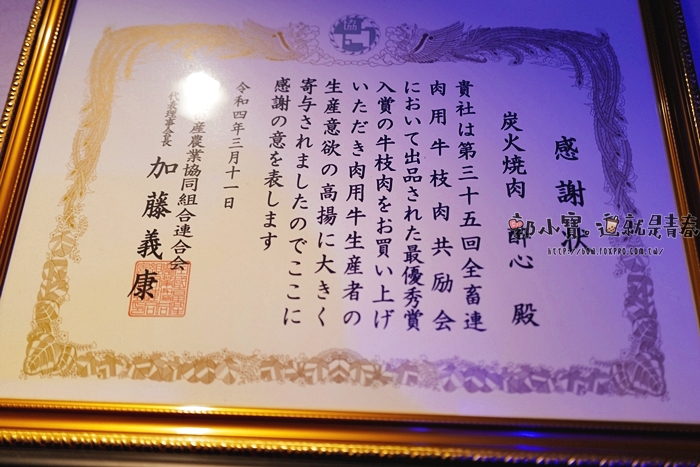 感謝状
炭火焼肉 酔心 殿
貴社は第三十五回全畜連
肉用牛枝肉共励会
において出品された最優秀賞
入賞の牛枝肉をお買い上げ
いただき肉用牛生産者の
生産意欲の高揚に大きく
寄与されましたのでここに
感謝の意を表します
令和四年三月十一日
産農業協同組合連合会
代表理事会長 加藤義康
小寶 就是青春